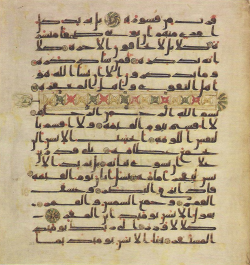 فرت من قسورة بل يريد كل
امرئ منهم ان يؤتى صحفا منشرة
كلا بل لا يخافون الاخرة كلا
انه تذكرة فمن شاء ذكره
وما يذكرون الا ان يشاء الله هو
اهل التقوى واهل المغفرة
بسم الله الرحمن الرحيم
لا اقسم بيوم القيمة ولا اقسم
بالنفس اللوامة ايحسب الانسن ا
لن نجمع عظامه بلى قدرين
على ان نسوى بنانه بل يريد
الانسن ليفجر امامه يسل ايان يوم
القيمة فاذا برق البصر وخسف
القمر وجمع الشمس والقمر
يقول الانسن يومئذ اين المفر
كلا لا وزر الى ربك يومئذ
المستقر ينبؤا الانسن يومئذ بما